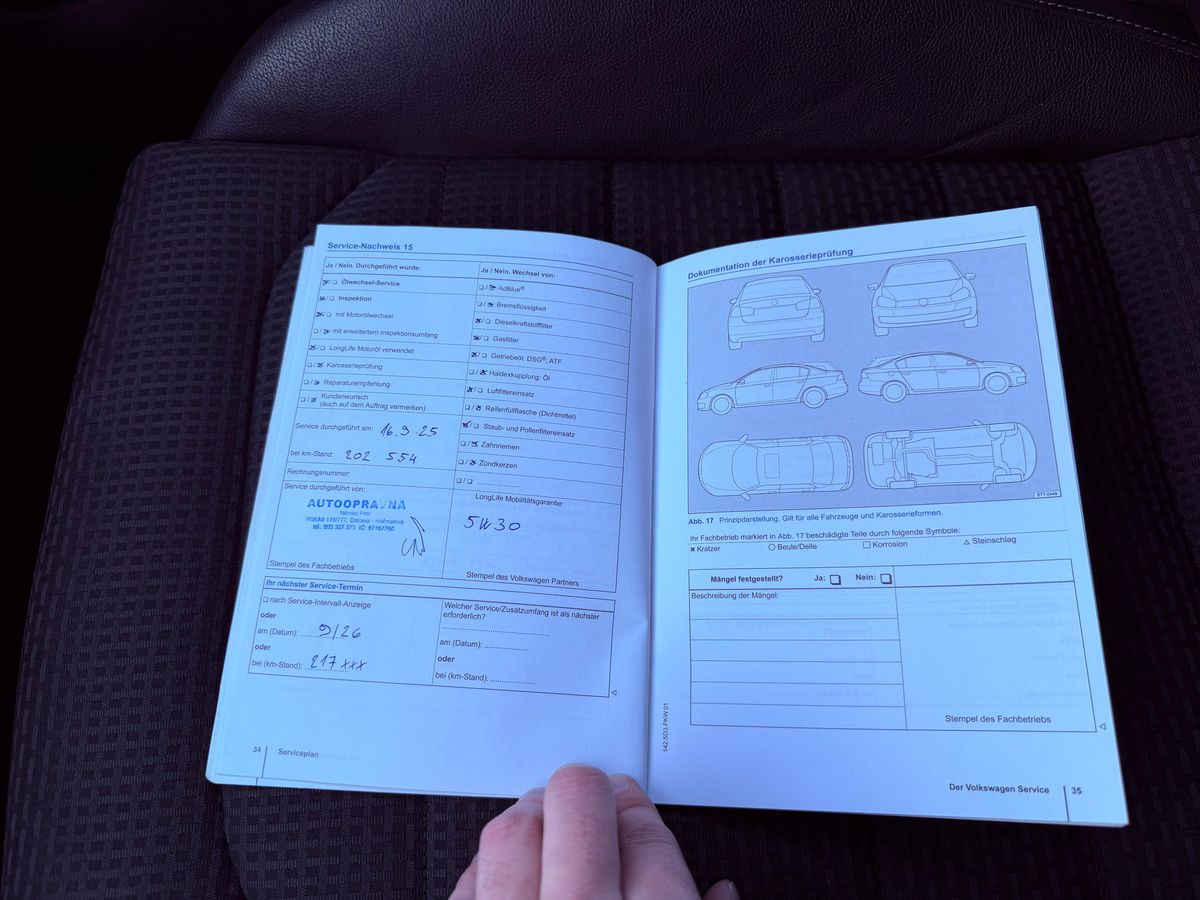 Service-Nachweis 15
Ja / Nein. Durchgeführt wurde:
Ölwechsel-Service
Inspektion
mit Motorölwechsel
mit erweitertem Inspektionsumfang
LongLife Motoröl verwendet
Karosserieprüfung
Reparaturempfehlung
Kundenwunsch
(auch auf dem Auftrag vermerken)
Service durchgeführt am: 16.9.25
bei km-Stand: 202 554
Rechnungsnummer:
Service durchgeführt von:
AUTOOPRAVNA
Němec Petr
Vrbická 175/777, Ostrava - Heřmanice
tel.: 603 307 371 IČ: 87167760
Stempel des Fachbetriebs
Ja / Nein. Wechsel von:
AdBlue®
Bremsflüssigkeit
Dieselkraftstofffilter
Gasfilter
Getriebeöl: DSG®, ATF
Haldexkupplung: Öl
Luftfiltereinsatz
Reifenfüllflasche (Dichtmittel)
Staub- und Pollenfiltereinsatz
Zahnriemen
Zündkerzen
LongLife Mobilitätsgarantie:
5W30
Stempel des Volkswagen Partners
Ihr nächster Service-Termin
nach Service-Intervall-Anzeige
oder
am (Datum): 9/26
oder
bei (km-Stand): 217 xxx
Welcher Service/Zusatzumfang ist als nächster
erforderlich?
am (Datum):
oder
bei (km-Stand):
34
Serviceplan
Dokumentation der Karosserieprüfung
BTT-0449
Abb. 17 Prinzipdarstellung. Gilt für alle Fahrzeuge und Karosserieformen.
Ihr Fachbetrieb markiert in Abb. 17 beschädigte Teile durch folgende Symbole:
× Kratzer ○ Beule/Delle □ Korrosion △ Steinschlag
Mängel festgestellt? Ja: Nein:
Beschreibung der Mängel:
Stempel des Fachbetriebs
142.5D3.PKW.01
Der Volkswagen Service
35